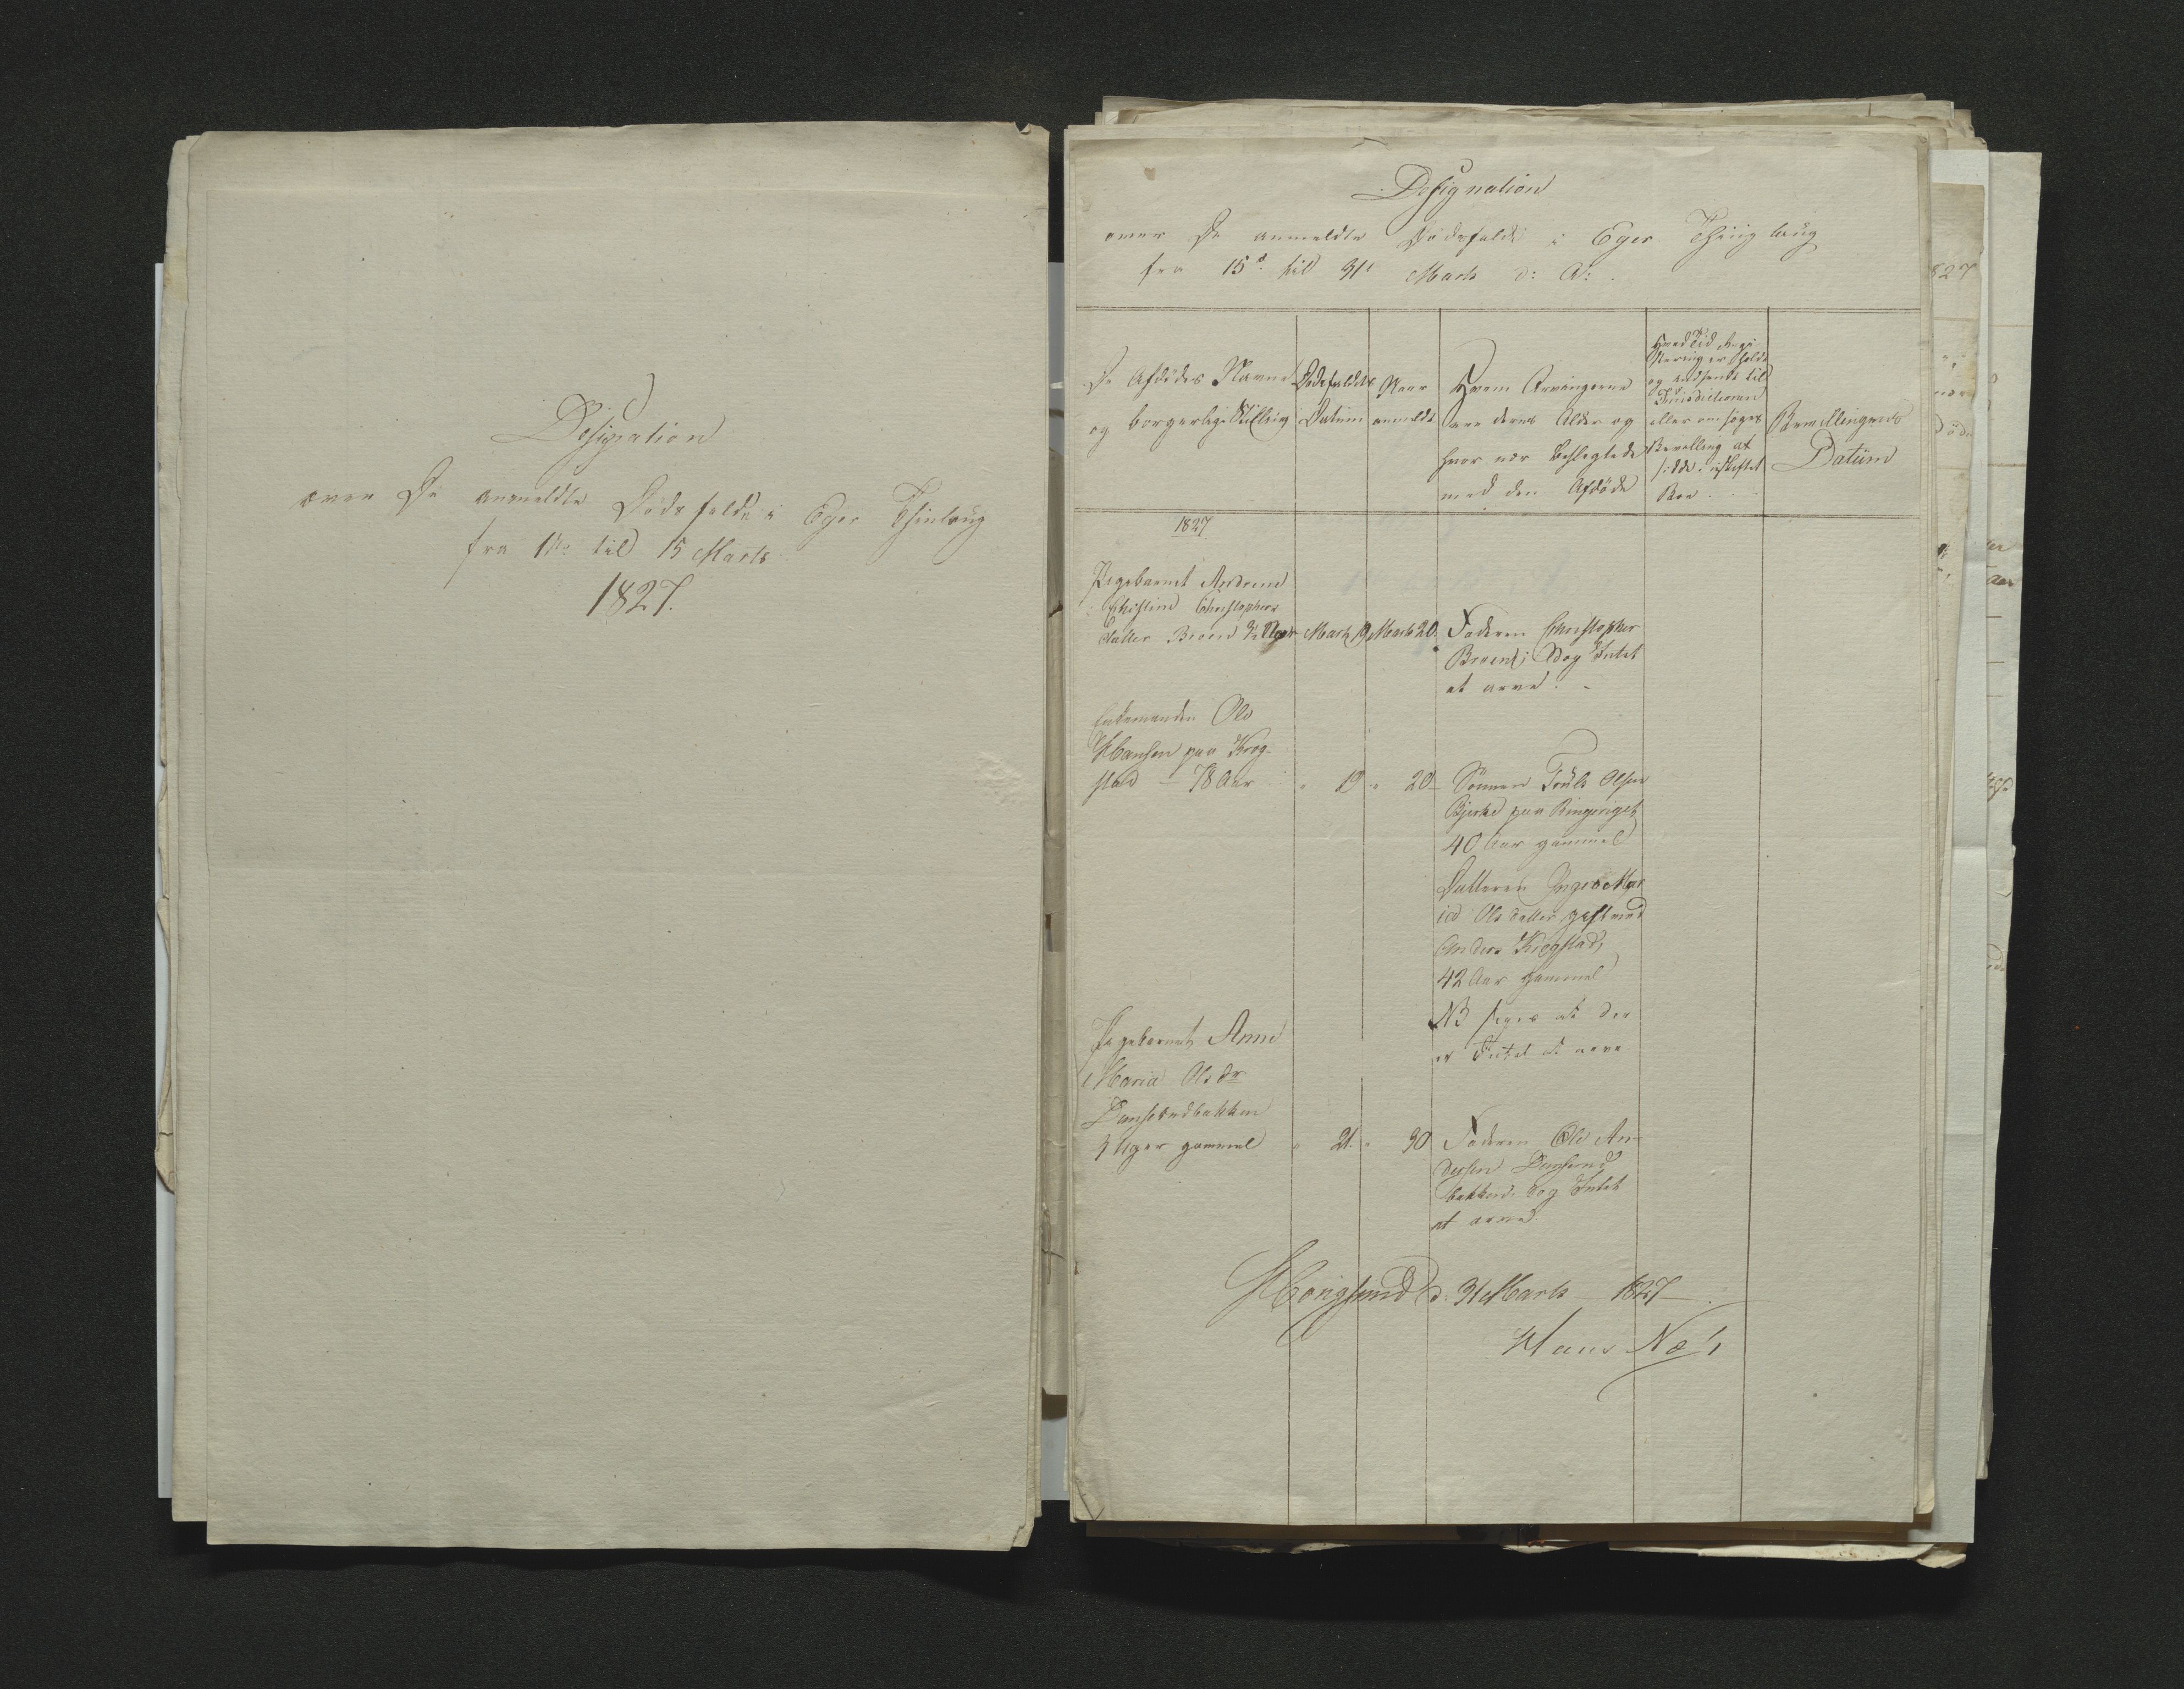 Designation
over De anmeldte Dødsfalde i Eger Thinlaug
fra 1te til 15 Marts
1827.
Designation
over De anmeldte Dødsfalde i Eger Thinglaug
fra 15d til 31t Marts d: A:
De Afdødes Navne
og borgerlige Stilling
Dødsfaldets
Datum
Naar
anmeldt
Hvem Arvingerne
ere deres Alder og
hvor nær beslegtede
med den Afdøde
Hvad Tid Regi-
stering er holdt
og indsendt til
Jurisdictionen
eller om søges
Bevilling at
sidde i uskiftet
Boe
Bevillingens
Datum
1827
Pigebarnet Andrine
Christine Christophers
datter Breend 3/4 Aar Marts 19 Marts 20 Faderen Christopher
Breend; dog Intet
at arve.
Enkemanden Ole
Hansen paa Krog-
stad - 78 Aar " 19 " 20 Sønnen Truls Olsen
Bjerke paa Ringeriget
40 Aar gammel
Datteren Inger Mar
ie Olsdatter gift med
Anders Krogstad,
42 Aar gammel
NB siges at der
er Intet at arve
Pigebarnet Anne
Maria Olsdr
3 Uger gammel " 21 " 30 Faderen Ole An-
dersen
bakken dog Intet
at arve.
Hougsund d: 31 Marts 1827
Hans Næss